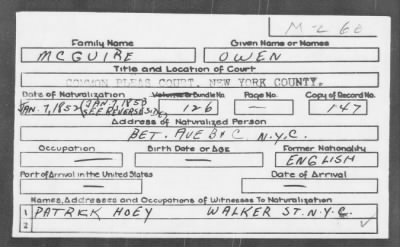 M-260
Family Name Given Name or Names
MCGUIRE OWEN
Title and Location of Court
COMMON PLEAS COURT, NEW YORK COUNTY.
Date of Naturalization Volume or Bundle No. Page No. Copy of Record No.
JAN. 7, 1852 (JAN. 7, 1853 SEE REVERSE SIDE) 126 — 147
Address of Naturalized Person
BET. AVE B & C N.Y.C.
Occupation Birth Date or Age Former Nationality
— — ENGLISH
Port of Arrival in the United States Date of Arrival
— —
Names, Addresses and Occupations of Witnesses To Naturalization
1 PATRICK HOEY WALKER ST. N.Y.C.
2